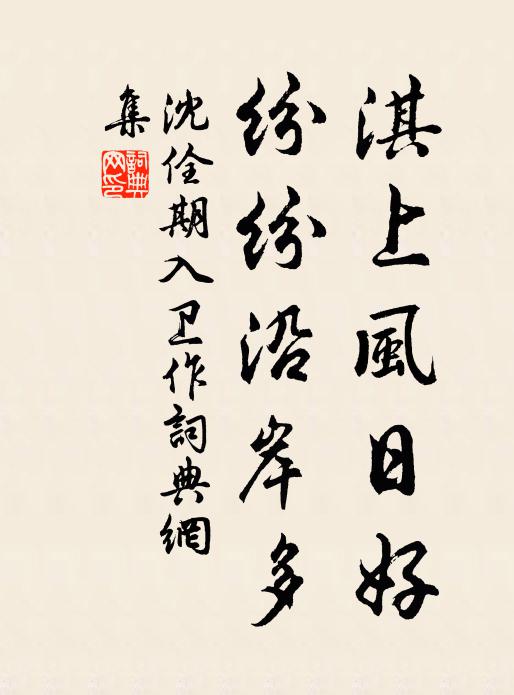 淇上風日好
紛紛沿岸多
沈佺期入卫作詞典網
集
詞典
网印